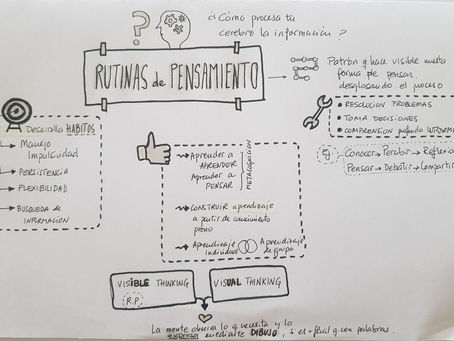 ¿Cómo procesa tu
cerebro la información?
RUTINAS de PENSAMIENTO
Patrón q hace visible nuestra
forma de pensar,
desglosando el proceso
• RESOLUCIÓN PROBLEMAS
• TOMA DECISIONES
• COMPRENSIÓN profunda
Ej Conocer → Percibir → Reflexio
Pensar → Debatir → Compartir
Desarrolla HÁBITOS
Manejo
Impulsividad
PERSISTENCIA
FLEXIBILIDAD
BÚSQUEDA de
INFORMACIÓN
Aprender a
APRENDER
Aprender a
PENSAR
METACOGNICIÓN
CONSTRUIR aprendizaje
a partir de conocimiento
previo
Aprendizaje
individual
Aprendizaje
de grupo
VISIBLE THINKING
R.P.
VISUAL THINKING
La mente observa lo q necesita y lo
expresa mediante DIBUJO, si es + fácil q con palabras.